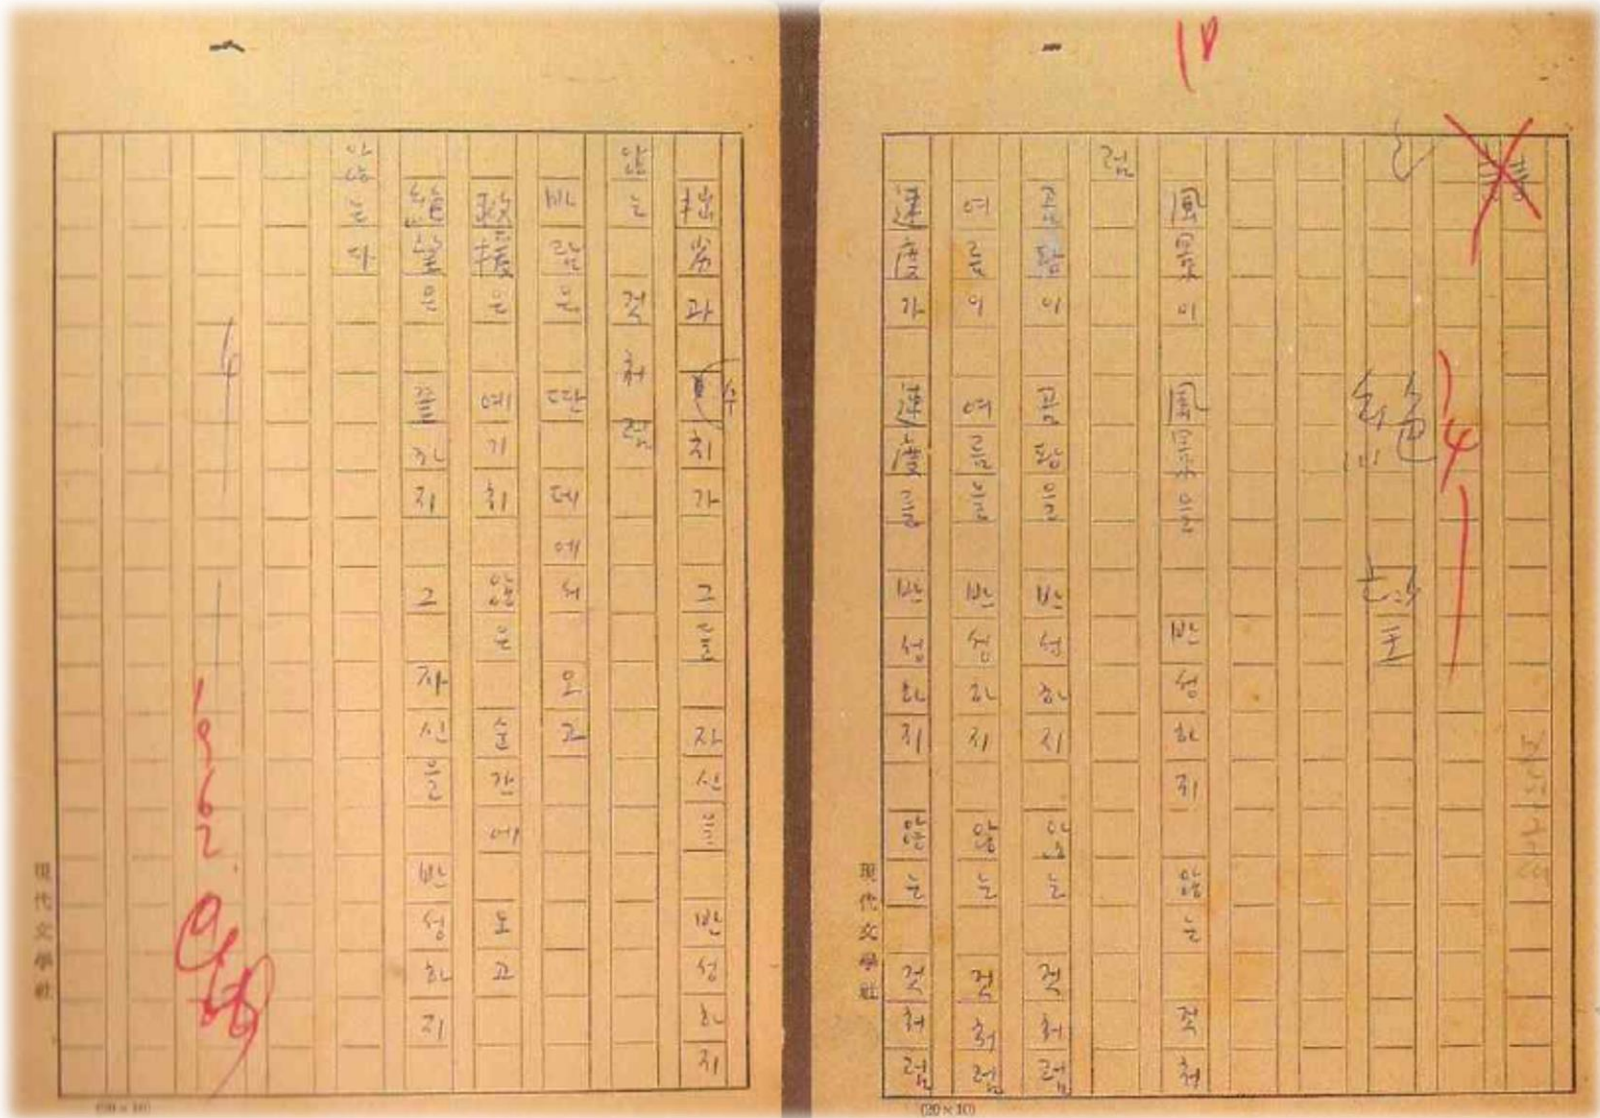 風景이 風景을 반성하지 않는 것처
럼
곰팡이 곰팡을 반성하지 않는 것처럼
여름이 여름을 반성하지 않는 것처럼
速度가 速度를 반성하지 않는 것처럼
現代文學社
(20×10)
拙劣과 수치가 그들 자신을 반성하지
않는 것처럼
바람은 딴 데에서 오고
救援은 예기치 않은 순간에 오고
絶望은 끝까지 그 자신을 반성하지
않는다
現代文學社
(20×10)